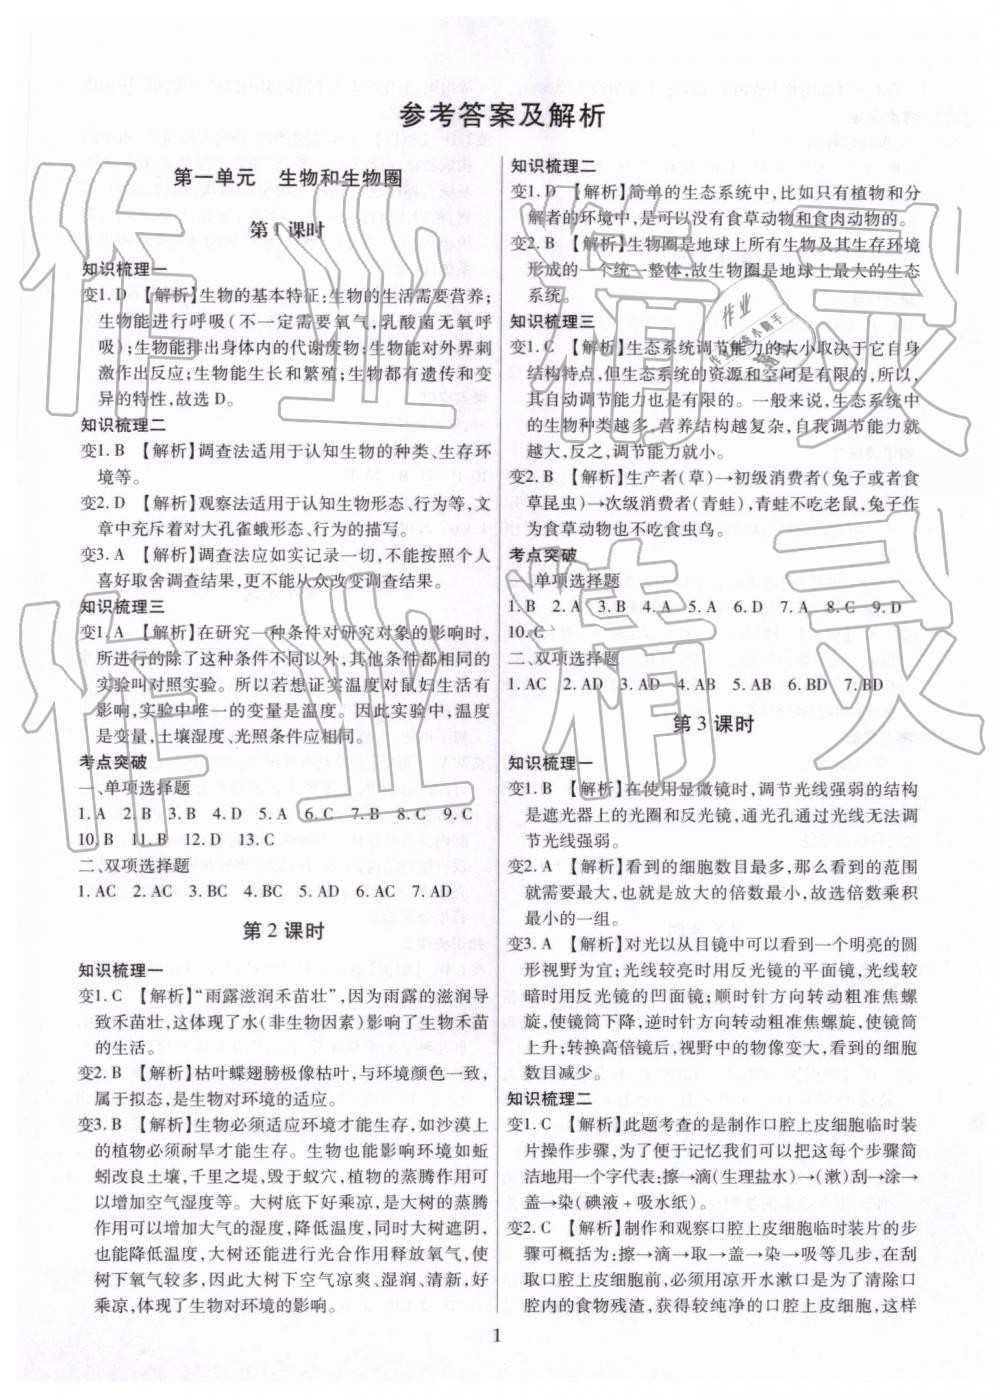 参考答案及解析
第一单元　生物和生物圈
第1课时
知识梳理一
变1. D　【解析】生物的基本特征:生物的生活需要营养;
生物能进行呼吸(不一定需要氧气,乳酸菌无氧呼
吸);生物能排出身体内的代谢废物;生物能对外界刺
激作出反应;生物能生长和繁殖;生物都有遗传和变
异的特性,故选D。
知识梳理二
变1. B　【解析】调查法适用于认知生物的种类、生存环
境等。
变2. D　【解析】观察法适用于认知生物形态、行为等,文
章中充斥着对大孔雀蛾形态、行为的描写。
变3. A　【解析】调查法应如实记录一切,不能按照个人
喜好取舍调查结果,更不能从众改变调查结果。
知识梳理三
变1. A　【解析】在研究一种条件对研究对象的影响时,
所进行的除了这种条件不同以外,其他条件都相同的
实验叫对照实验。所以若想证实温度对鼠妇生活有
影响,实验中唯一的变量是温度。因此实验中,温度
是变量,土壤湿度、光照条件应相同。
考点突破
一、单项选择题
1. A　2. B　3. B　4. D　5. A　6. C　7. B　8. C　9. C
10. B　11. B　12. D　13. C
二、双项选择题
1. AC　2. AC　3. BC　4. BC　5. AD　6. AC　7. AD
第2课时
知识梳理一
变1. C　【解析】“雨露滋润禾苗壮”,因为雨露的滋润导
致禾苗壮,这体现了水(非生物因素)影响了生物禾苗
的生活。
变2. B　【解析】枯叶蝶翅膀极像枯叶,与环境颜色一致,
属于拟态,是生物对环境的适应。
变3. B　【解析】生物必须适应环境才能生存,如沙漠上
的植物必须耐旱才能生存。生物也能影响环境如蚯
蚓改良土壤,千里之堤,毁于蚁穴,植物的蒸腾作用可
以增加空气湿度等。大树底下好乘凉,是大树的蒸腾
作用可以增加大气的湿度,降低温度,同时大树遮阴,
也能降低温度,大树还能进行光合作用释放氧气,使
树下氧气较多,因此大树下空气凉爽、湿润、清新,好
乘凉,体现了生物对环境的影响。
知识梳理二
变1. D　【解析】简单的生态系统中,比如只有植物和分
解者的环境中,是可以没有食草动物和食肉动物的。
变2. B　【解析】生物圈是地球上所有生物及其生存环境
形成的一个统一整体,故生物圈是地球上最大的生态
系统。
知识梳理三
变1. C　【解析】生态系统调节能力的大小取决于它自身
结构特点,但生态系统的资源和空间是有限的,所以,
其自动调节能力也是有限的。一般来说,生态系统中
的生物种类越多,营养结构越复杂,自我调节能力就
越大,反之,调节能力就小。
变2. B　【解析】生产者(草)→初级消费者(兔子或者食
草昆虫)→次级消费者(青蛙),青蛙不吃老鼠,兔子作
为食草动物也不吃食虫鸟。
考点突破
一、单项选择题
1. B　2. A　3. B　4. A　5. A　6. D　7. A　8. C　9. D
10. C
二、双项选择题
1. AC　2. AD　3. AD　4. AD　5. AB　6. BD　7. BD
第3课时
知识梳理一
变1. B　【解析】在使用显微镜时,调节光线强弱的结构
是遮光器上的光圈和反光镜,通光孔通过光线无法调
节光线强弱。
变2. A　【解析】看到的细胞数目最多,那么看到的范围
就需要最大,也就是放大的倍数最小,故选倍数乘积
最小的一组。
变3. A　【解析】对光以从目镜中可以看到一个明亮的圆
形视野为宜;光线较亮时用反光镜的平面镜,光线较
暗时用反光镜的凹面镜;顺时针方向转动粗准焦螺
旋,使镜筒下降,逆时针方向转动粗准焦螺旋,使镜筒
上升;转换高倍镜后,视野中的物像变大,看到的细胞
数目减少。
知识梳理二
变1. C　【解析】此题考查的是制作口腔上皮细胞临时装
片操作步骤,为了便于记忆我们可以把这每个步骤简
洁地用一个字代表:擦→滴(生理盐水)→(漱)刮→涂→
盖→染(碘液+吸水纸)。
变2. C　【解析】制作和观察口腔上皮细胞临时装片的步
骤可概括为:擦→滴→取→盖→染→吸等几步,在刮
取口腔上皮细胞前,必须用凉开水漱口是为了清除口
腔内的食物残渣,获得较纯净的口腔上皮细胞,这样
1
作业精灵
作业精灵